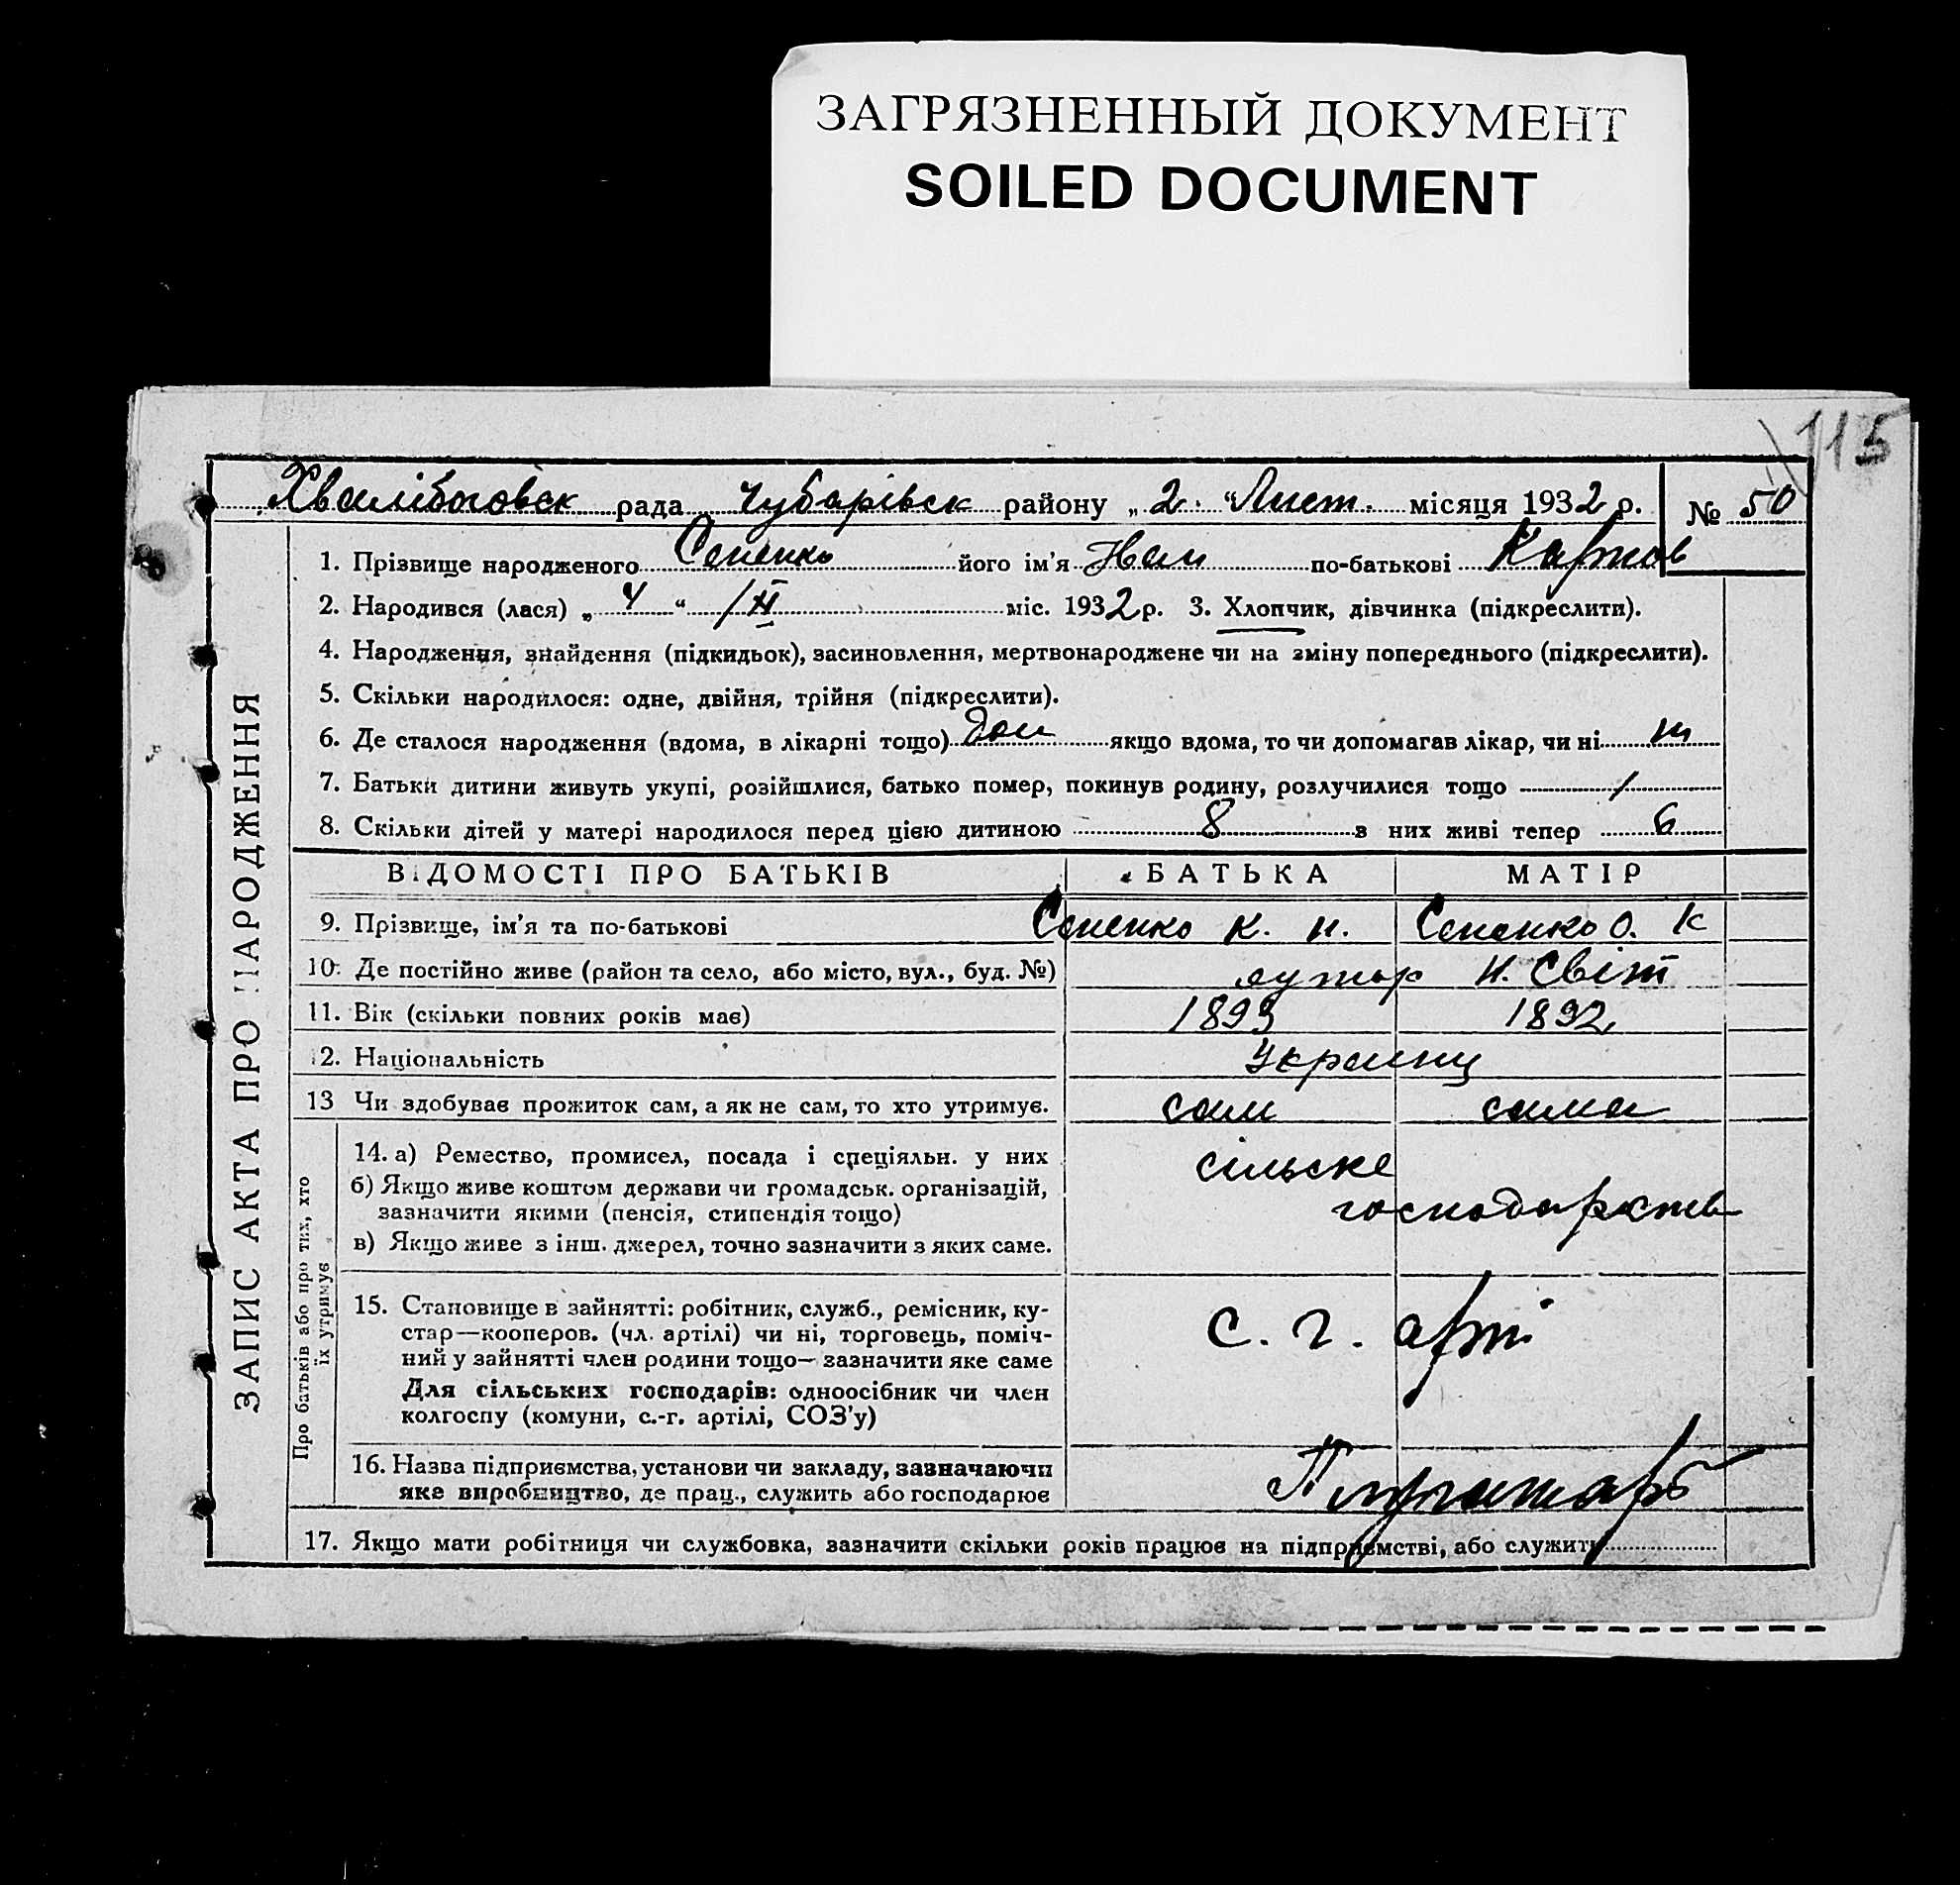 ЗАГРЯЗНЕННЫЙ ДОКУМЕНТ
SOILED DOCUMENT
115
Хвалібоговск рада Чубарівск району „2“ Лист. місяця 1932 р. № 50
1. Прізвище народженого його ім'я по-батькові
2. Народився (лася) „ “ міс. 1932 р. 3. Хлопчик, дівчинка (підкреслити).
4. Народження, знайдення (підкидьок), засиновлення, мертвонароджене чи на зміну попереднього (підкреслити).
5. Скільки народилося: одне, двійня, трійня (підкреслити).
6. Де сталося народження (вдома, в лікарні тощо) дом якщо вдома, то чи допомагав лікар, чи ні
7. Батьки дитини живуть укупі, розійшлися, батько помер, покинув родину, розлучилися тощо
8. Скільки дітей у матері народилося перед цією дитиною 8 з них живі тепер 6
ВІДОМОСТІ ПРО БАТЬКІВ БАТЬКА МАТІР
9. Прізвище, ім'я та по-батькові К. И. О. К
10. Де постійно живе (район та село, або місто, вул., буд. №) хутор Н. Світ
11. Вік (скільки повних років має) 1893 1892
12. Національність Украинц
13 Чи здобуває прожиток сам, а як не сам, то хто утримує. сам сама
14. а) Ремество, промисел, посада і спеціяльн. у них сільске
б) Якщо живе коштом держави чи громадськ. організацій, господарств
зазначити якими (пенсія, стипендія тощо)
в) Якщо живе з інш. джерел, точно зазначити з яких саме.
15. Становище в зайнятті: робітник, служб., ремісник, ку-
стар—кооперов. (чл. артілі) чи ні, торговець, поміч- с. г. арті
ний у зайнятті член родини тощо— зазначити яке саме
Для сільських господарів: одноосібник чи член
колгоспу (комуни, с.-г. артілі, СОЗ'у)
16. Назва підприємства, установи чи закладу, зазначаючи
яке виробництво, де прац., служить або господарює
17. Якщо мати робітниця чи службовка, зазначити скільки років працює на підприємстві, або служить
ЗАПИС АКТА ПРО НАРОДЖЕННЯ
Про батьків або про тих, хто
їх утримує